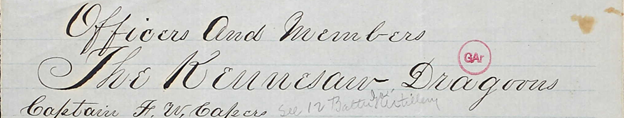 Officers And Members
GAr
The Kennesaw Dragoons
Captain F. W. Capers See 12 Battn Artillery